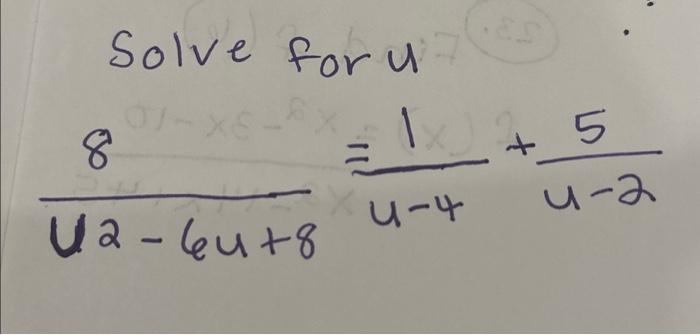 Solve for u
8 / U2 - 6u + 8 = 1 / u - 4 + 5 / u - 2